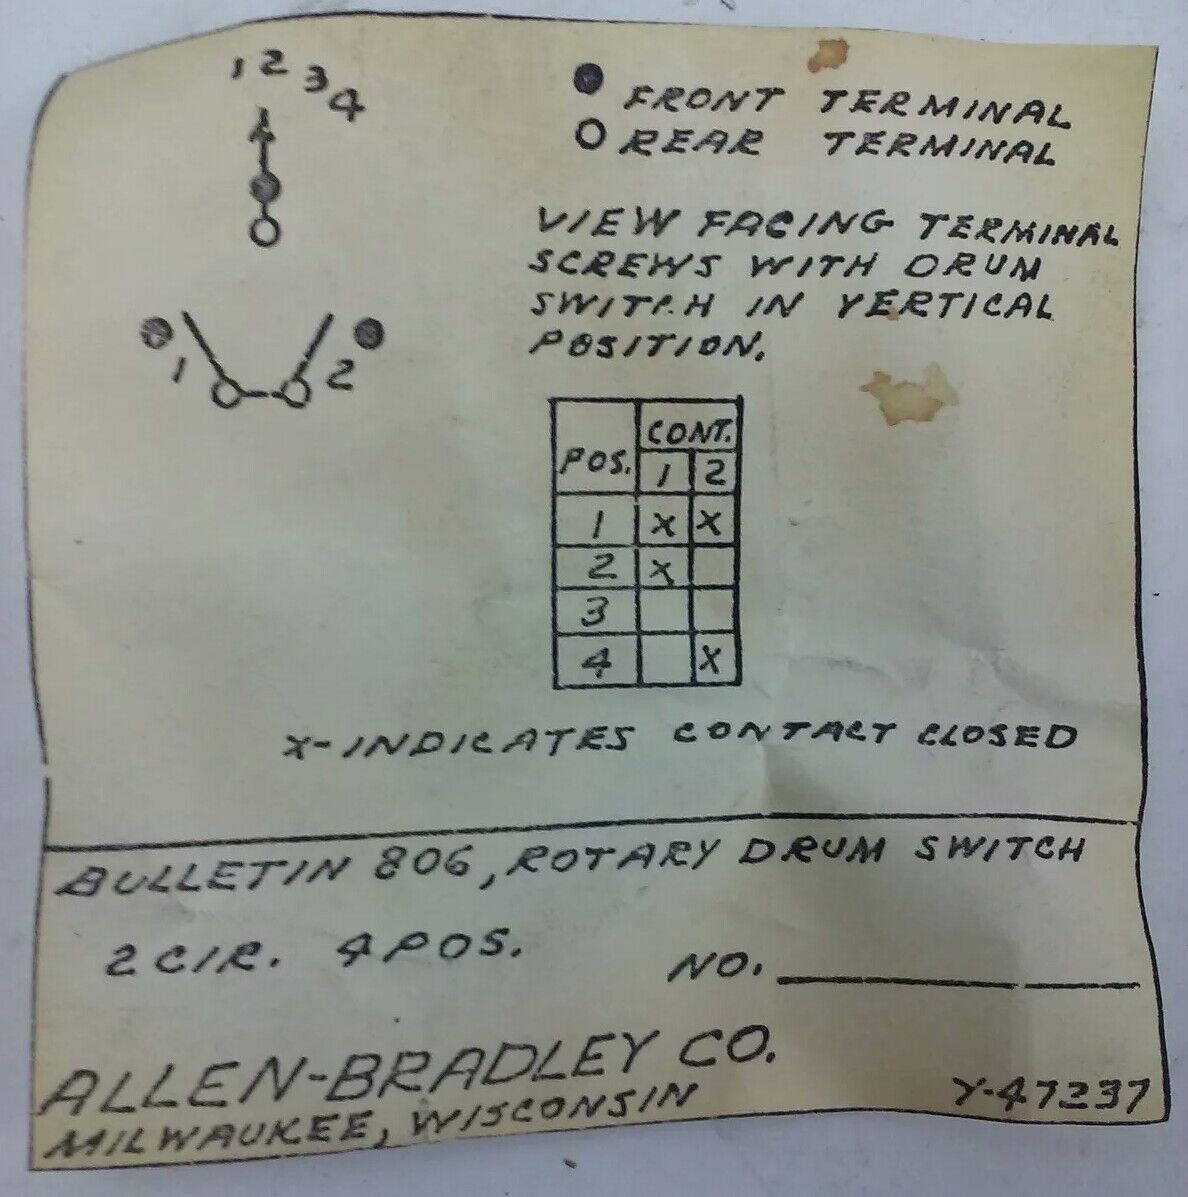 1 2 3 4
FRONT TERMINAL
REAR TERMINAL
VIEW FACING TERMINAL
SCREWS WITH DRUM
SWITCH IN VERTICAL
POSITION.
1 2
POS. CONT.
1 2
1 X X
2 X
3
4 X
X-INDICATES CONTACT CLOSED
BULLETIN 806, ROTARY DRUM SWITCH
2 CIR. 4 POS.
NO.
ALLEN-BRADLEY CO.
MILWAUKEE, WISCONSIN
Y-47237